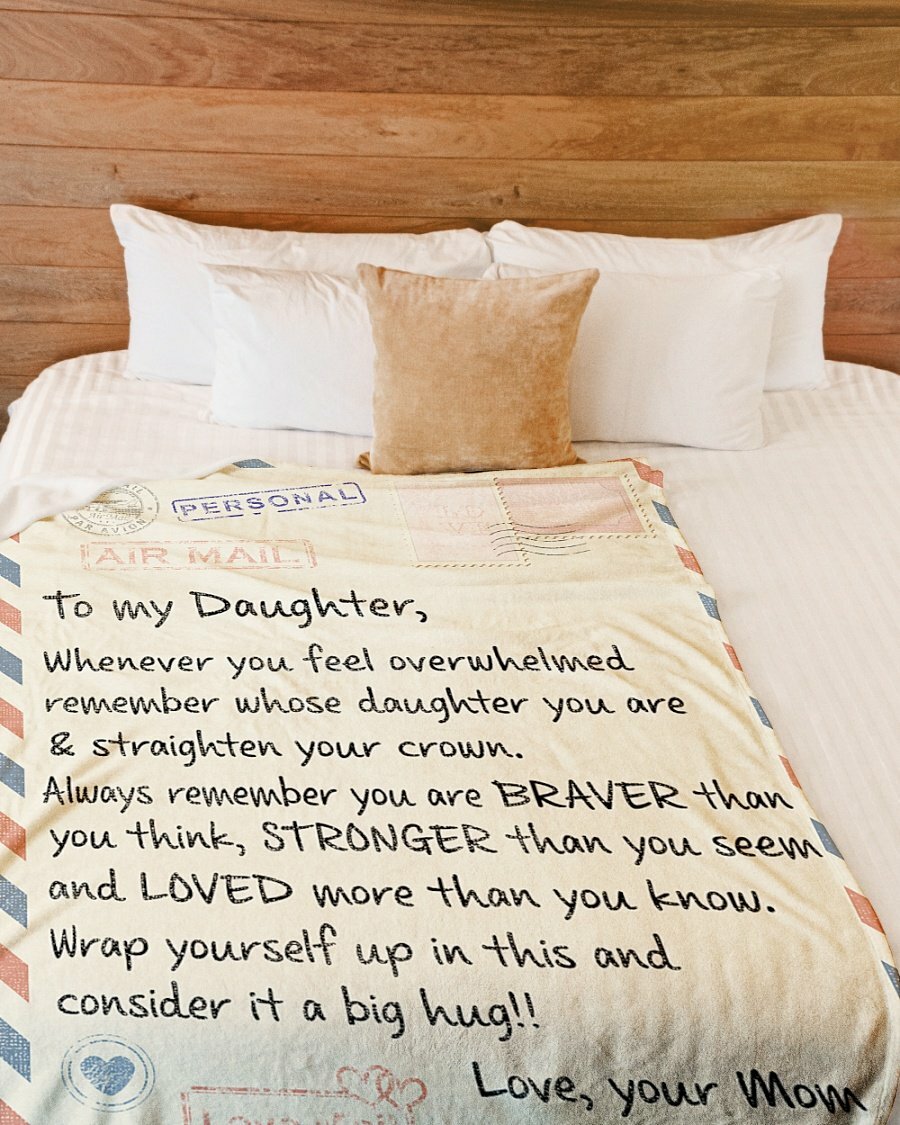 PAR AVION
PERSONAL
AIR MAIL
To my Daughter,
Whenever you feel overwhelmed
remember whose daughter you are
& straighten your crown.
Always remember you are BRAVER than
you think, STRONGER than you seem
and LOVED more than you know.
Wrap yourself up in this and
consider it a big hug!!
Love, your Mom